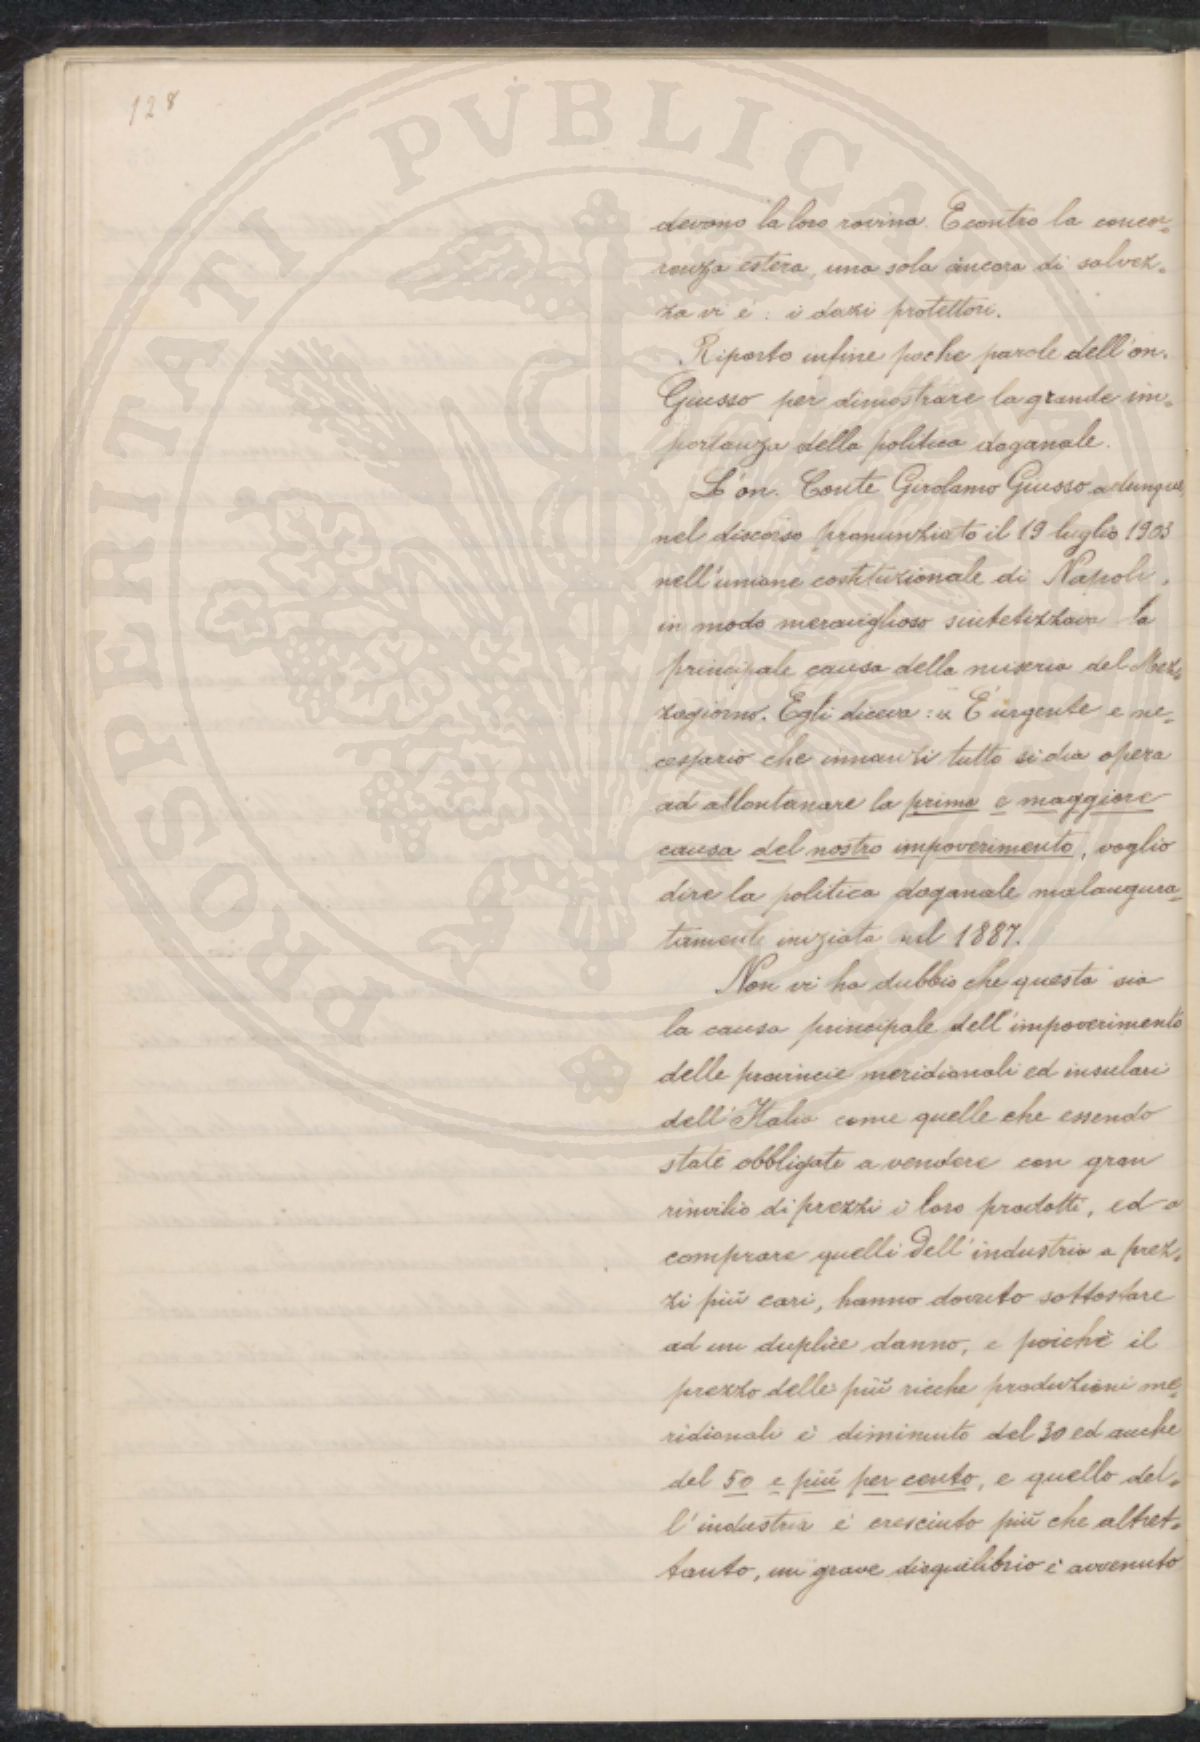 128
devono la loro rovina. E contro la concor=
renza estera, una sola àncora di salvez=
za vi è: i dazi protettori.
Riporto infine poche parole dell'on.
Giusso per dimostrare la grande im=
portanza della politica doganale.
L'on. Conte Girolamo Giusso adunque,
nel discorso pronunziato il 19 luglio 1903
nell'unione costituzionale di Napoli,
in modo meraviglioso sintetizzava la
principale causa della miseria del Mez=
zogiorno. Egli diceva: « E' urgente e ne=
cessario che innanzi tutto si dia opera
ad allontanare la prima e maggiore
causa del nostro impoverimento, voglio
dire la politica doganale malaugura=
tamente iniziata nel 1887.
Non vi ha dubbio che questa sia
la causa principale dell'impoverimento
delle provincie meridionali ed insulari
dell'Italia come quelle che essendo
state obbligate a vendere con gran
rinvilio di prezzi i loro prodotti, ed a
comprare quelli dell'industria a prez=
zi più cari, hanno dovuto sottostare
ad un duplice danno, e poichè il
prezzo delle più ricche produzioni me=
ridionali è diminuito del 30 ed anche
del 50 e più per cento, e quello del=
l'industria è cresciuto più che altret=
tanto, un grave disquilibrio è avvenuto
PROSPERITATI PUBLICAE